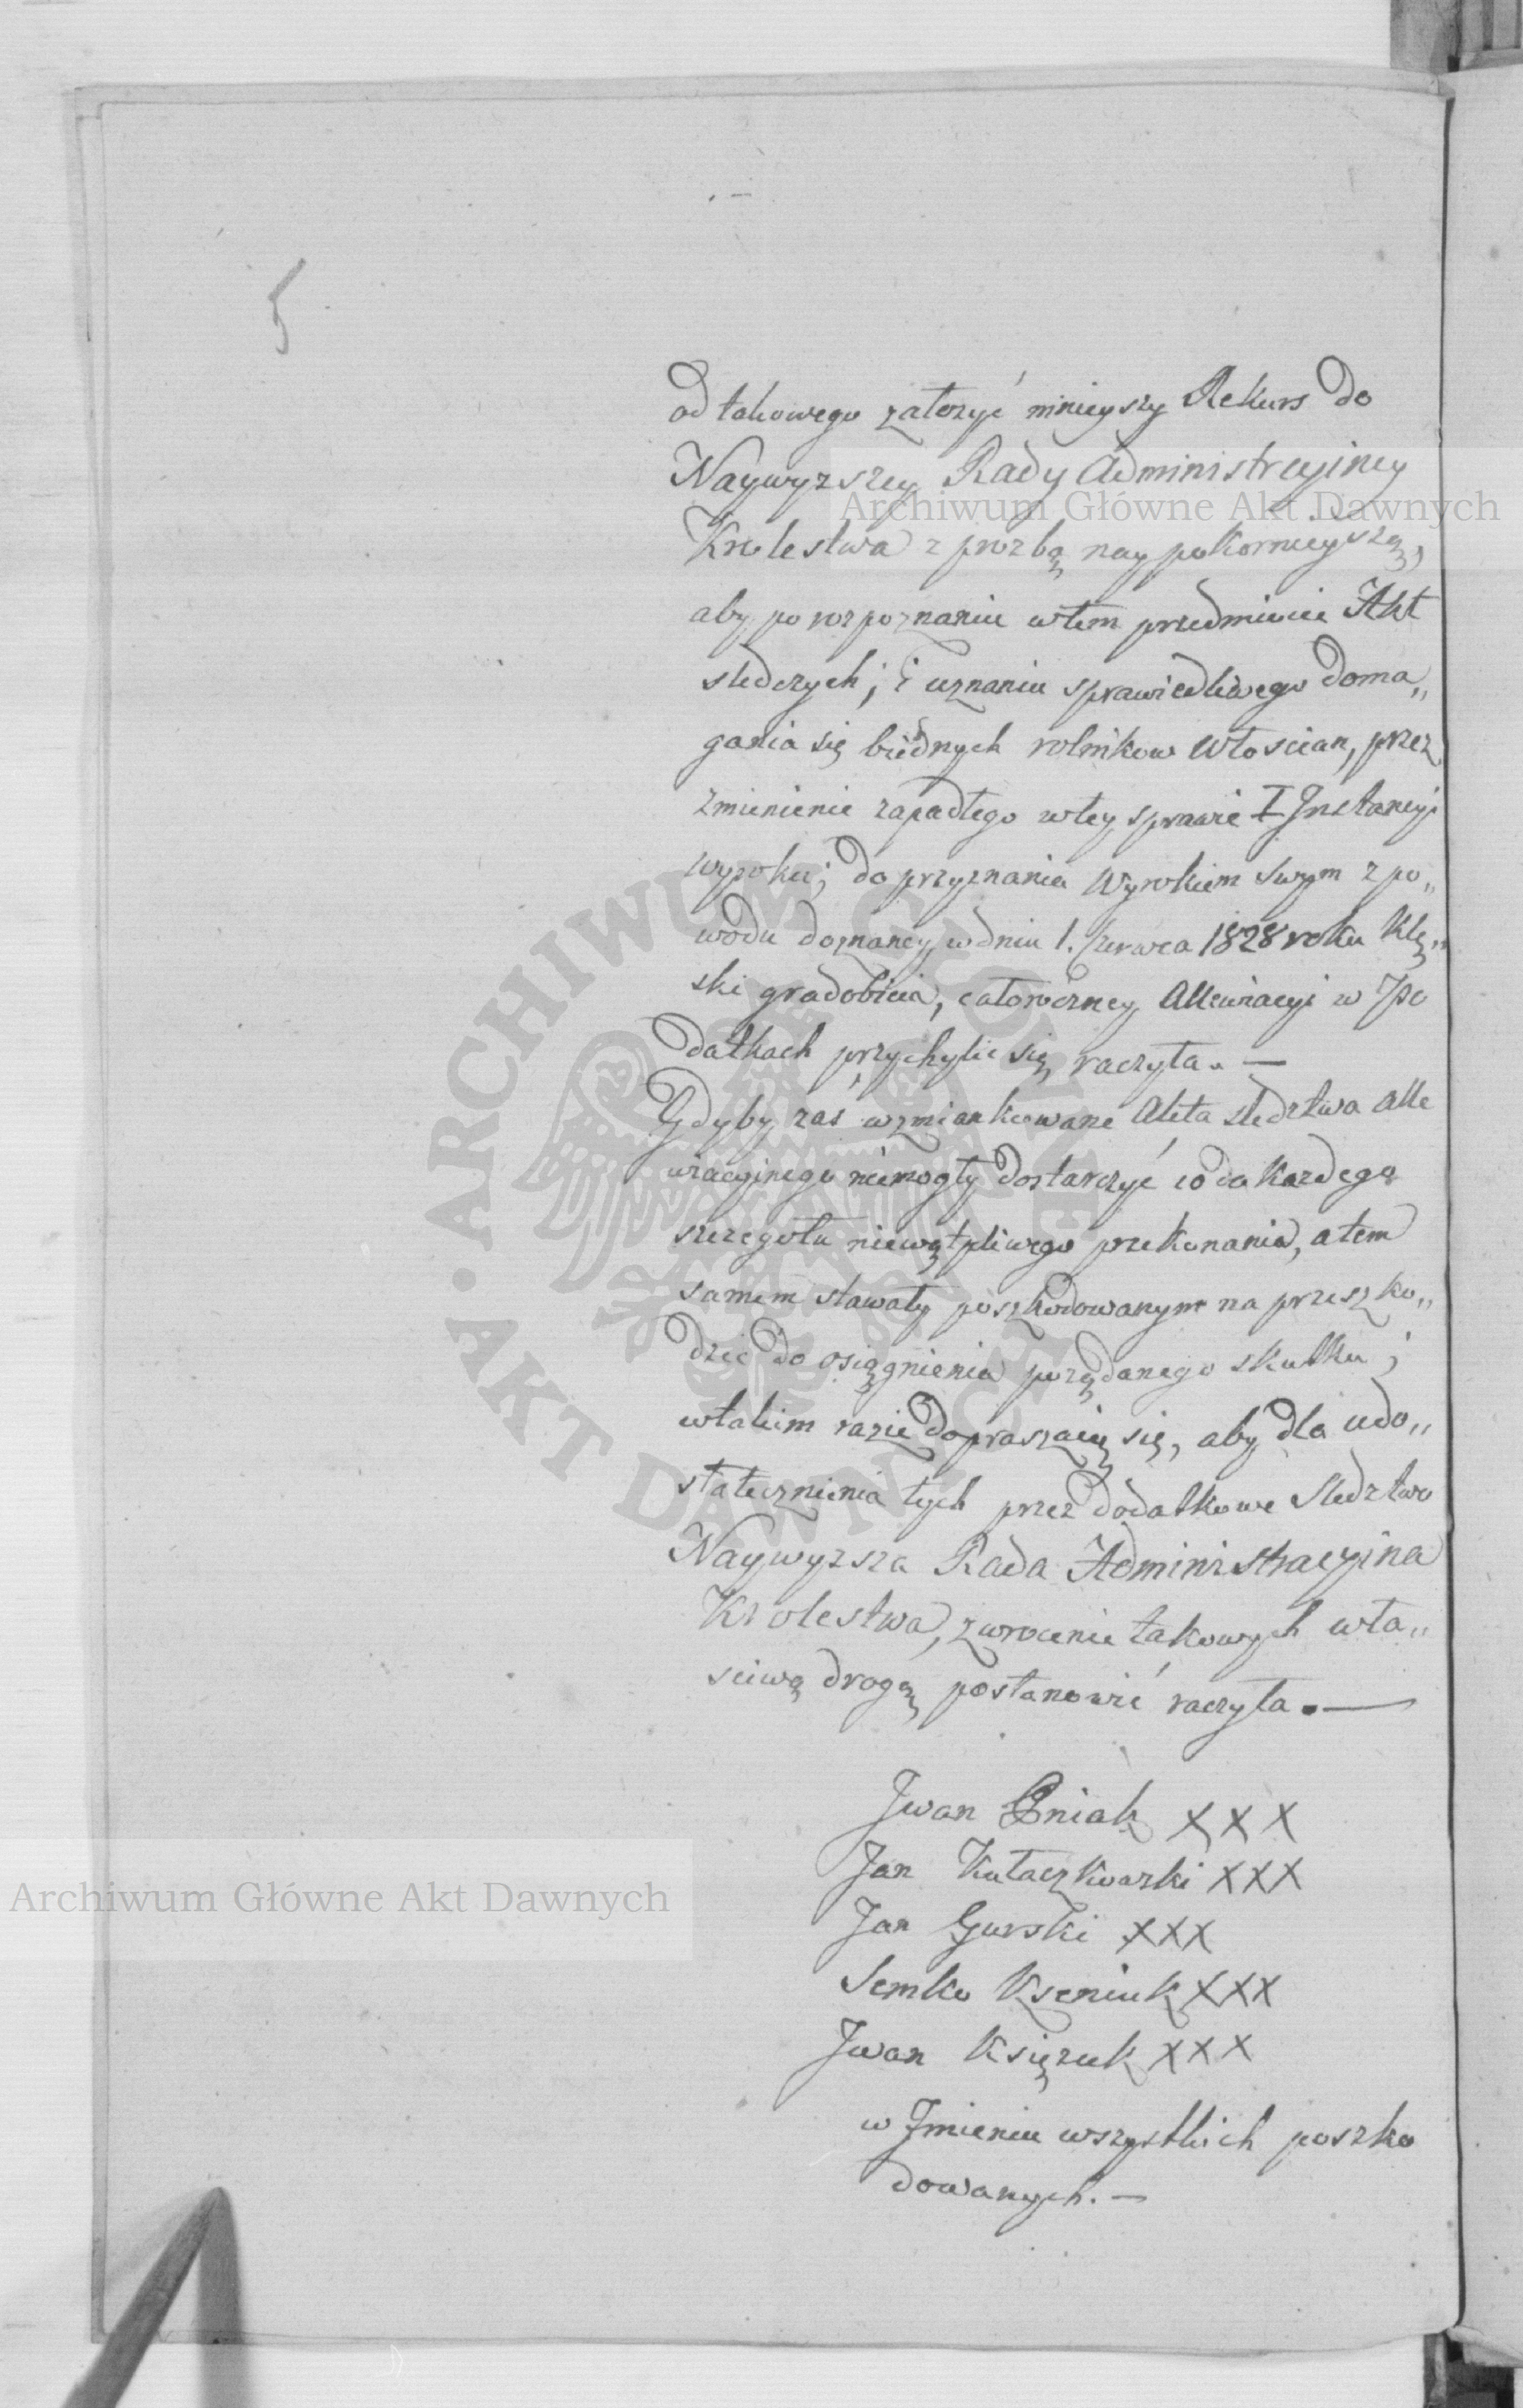 5
od takowego założyć ninieyszy Rekurs do
Naywyzszey Rady Administracyiney
Krolestwa z prozbą naypokornieyszą,
aby po rozpoznaniu wtem przedmiocie Akt
sledczych; i uznaniu sprawiedliwego doma„
gania się biédnych rolnikow Włoscian, przez
zmienienie zapadłego wtey sprawie I Jnstancyi
wyroku; do przyznania Wyrokiem swym z po„
wodu doznaney w dniu 1. Czerwca 1828 roku Klę„
ski gradobicia, całoroczney Allewiacyi w Po
datkach przychylic się raczyła. —
Gdyby zas wzmiankowane Akta sledztwa alle
wiacyinego niemogły dostarczyć co do każdego
szczegołu niewątpliwego przekonania, atem
samem stawały poszkodowanym na przeszko„
dzie do osiągnienia porządanego skutku;
wtakim razie dopraszaią się, aby dla udo„
statecznienia tych przez dodatkowe Sledztwo
Naywyzsza Rada Administracyina
Krolestwa, zwrocenie takowych wła„
sciwą drogą postanowić raczyła. —
Jwan Oniak XXX
Jan Kułaczkowski XXX
Jan Gurski XXX
Semko Kseniuk XXX
Jwan Księzuk XXX
w Jmieniu wszystkich poszko
dowanych. —
Archiwum Główne Akt Dawnych
Archiwum Główne Akt Dawnych
ARCHIWUM GŁÓWNE • AKT DAWNYCH